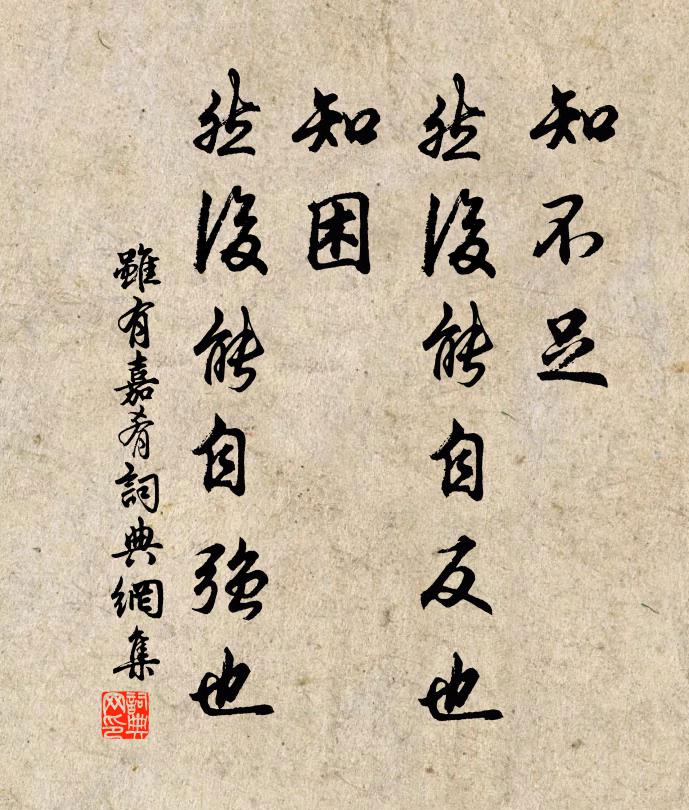 知不足
然後能自反也
知困
然後能自強也
雖有嘉肴詞典網集
詞典网印